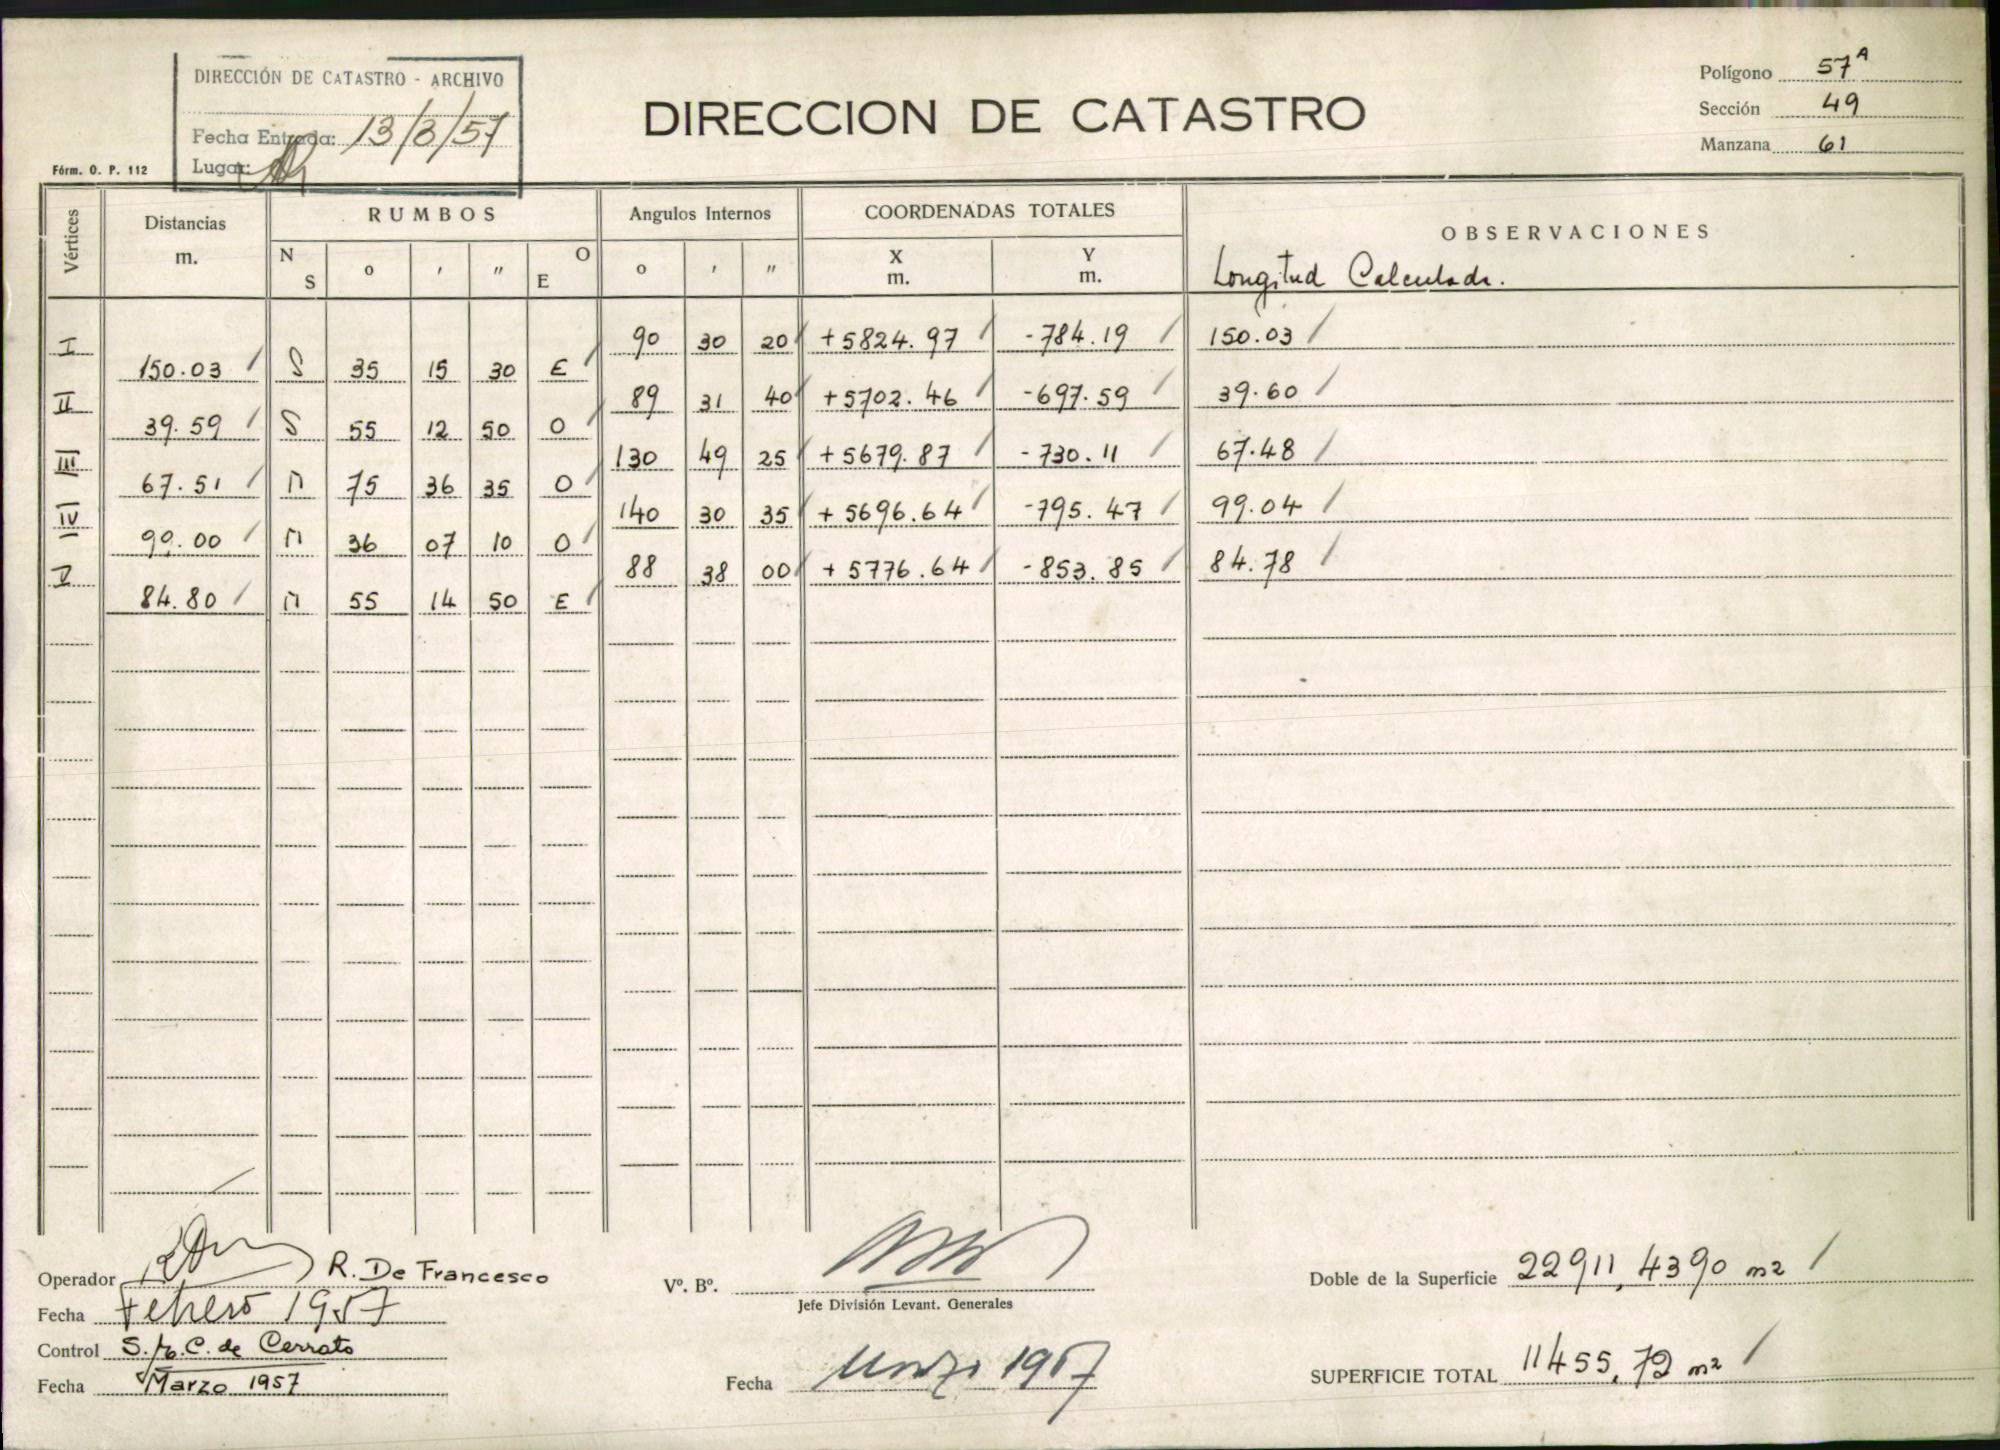 DIRECCIÓN DE CATASTRO - ARCHIVO
Fecha Entrada: 13/3/57
Lugar:
Fórm. O. P. 112
DIRECCION DE CATASTRO
Polígono 57A
Sección 49
Manzana 61
Vértices Distancias m. RUMBOS Angulos Internos COORDENADAS TOTALES OBSERVACIONES
N S o ' " O E o ' " X m. Y m. Longitud Calculada.
I 90 30 20 +5824.97 -784.19 150.03
150.03 S 35 15 30 E
II 89 31 40 +5702.46 -697.59 39.60
39.59 S 55 12 50 O
III 130 49 25 +5679.87 -730.11 67.48
67.51 N 75 36 35 O
IV 140 30 35 +5696.64 -795.47 99.04
99.00 N 36 07 10 O
V 88 38 00 +5776.64 -853.85 84.78
84.80 N 55 14 50 E
Operador R. De Francesco
Fecha Febrero 1957
Control S. C. de Cerrato
Fecha Marzo 1957
Vº. Bº.
Jefe División Levant. Generales
Fecha Marzo 1957
Doble de la Superficie 22911,4390 m2
SUPERFICIE TOTAL 11455,72 m2